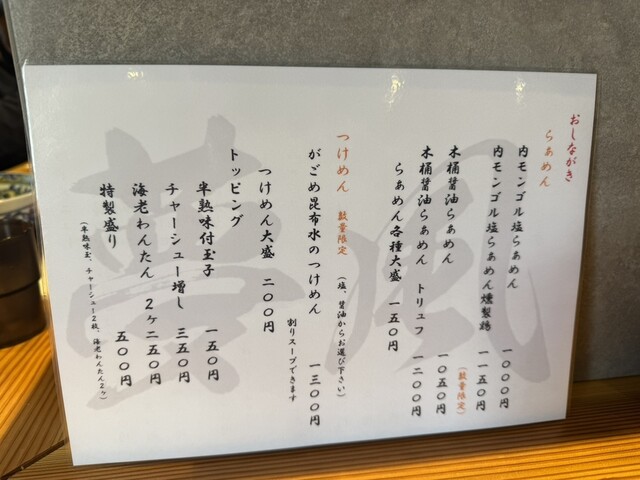 おしながき
らぁめん
内モンゴル塩らぁめん 一〇〇〇円
内モンゴル塩らぁめん燻製鶏 一一五〇円
(数量限定)
木桶醤油らぁめん 一〇五〇円
木桶醤油らぁめん トリュフ 一二〇〇円
らぁめん各種大盛 一五〇円
つけめん 数量限定 (塩、醤油からお選び下さい)
がごめ昆布水のつけめん 一三〇〇円
割りスープできます
つけめん大盛 二〇〇円
トッピング
半熟味付玉子 一五〇円
チャーシュー増し 三五〇円
海老わんたん 2ケ二五〇円
特製盛り 五〇〇円
(半熟味玉、チャーシュー2枚、海老わんたん2ケ)
夢風